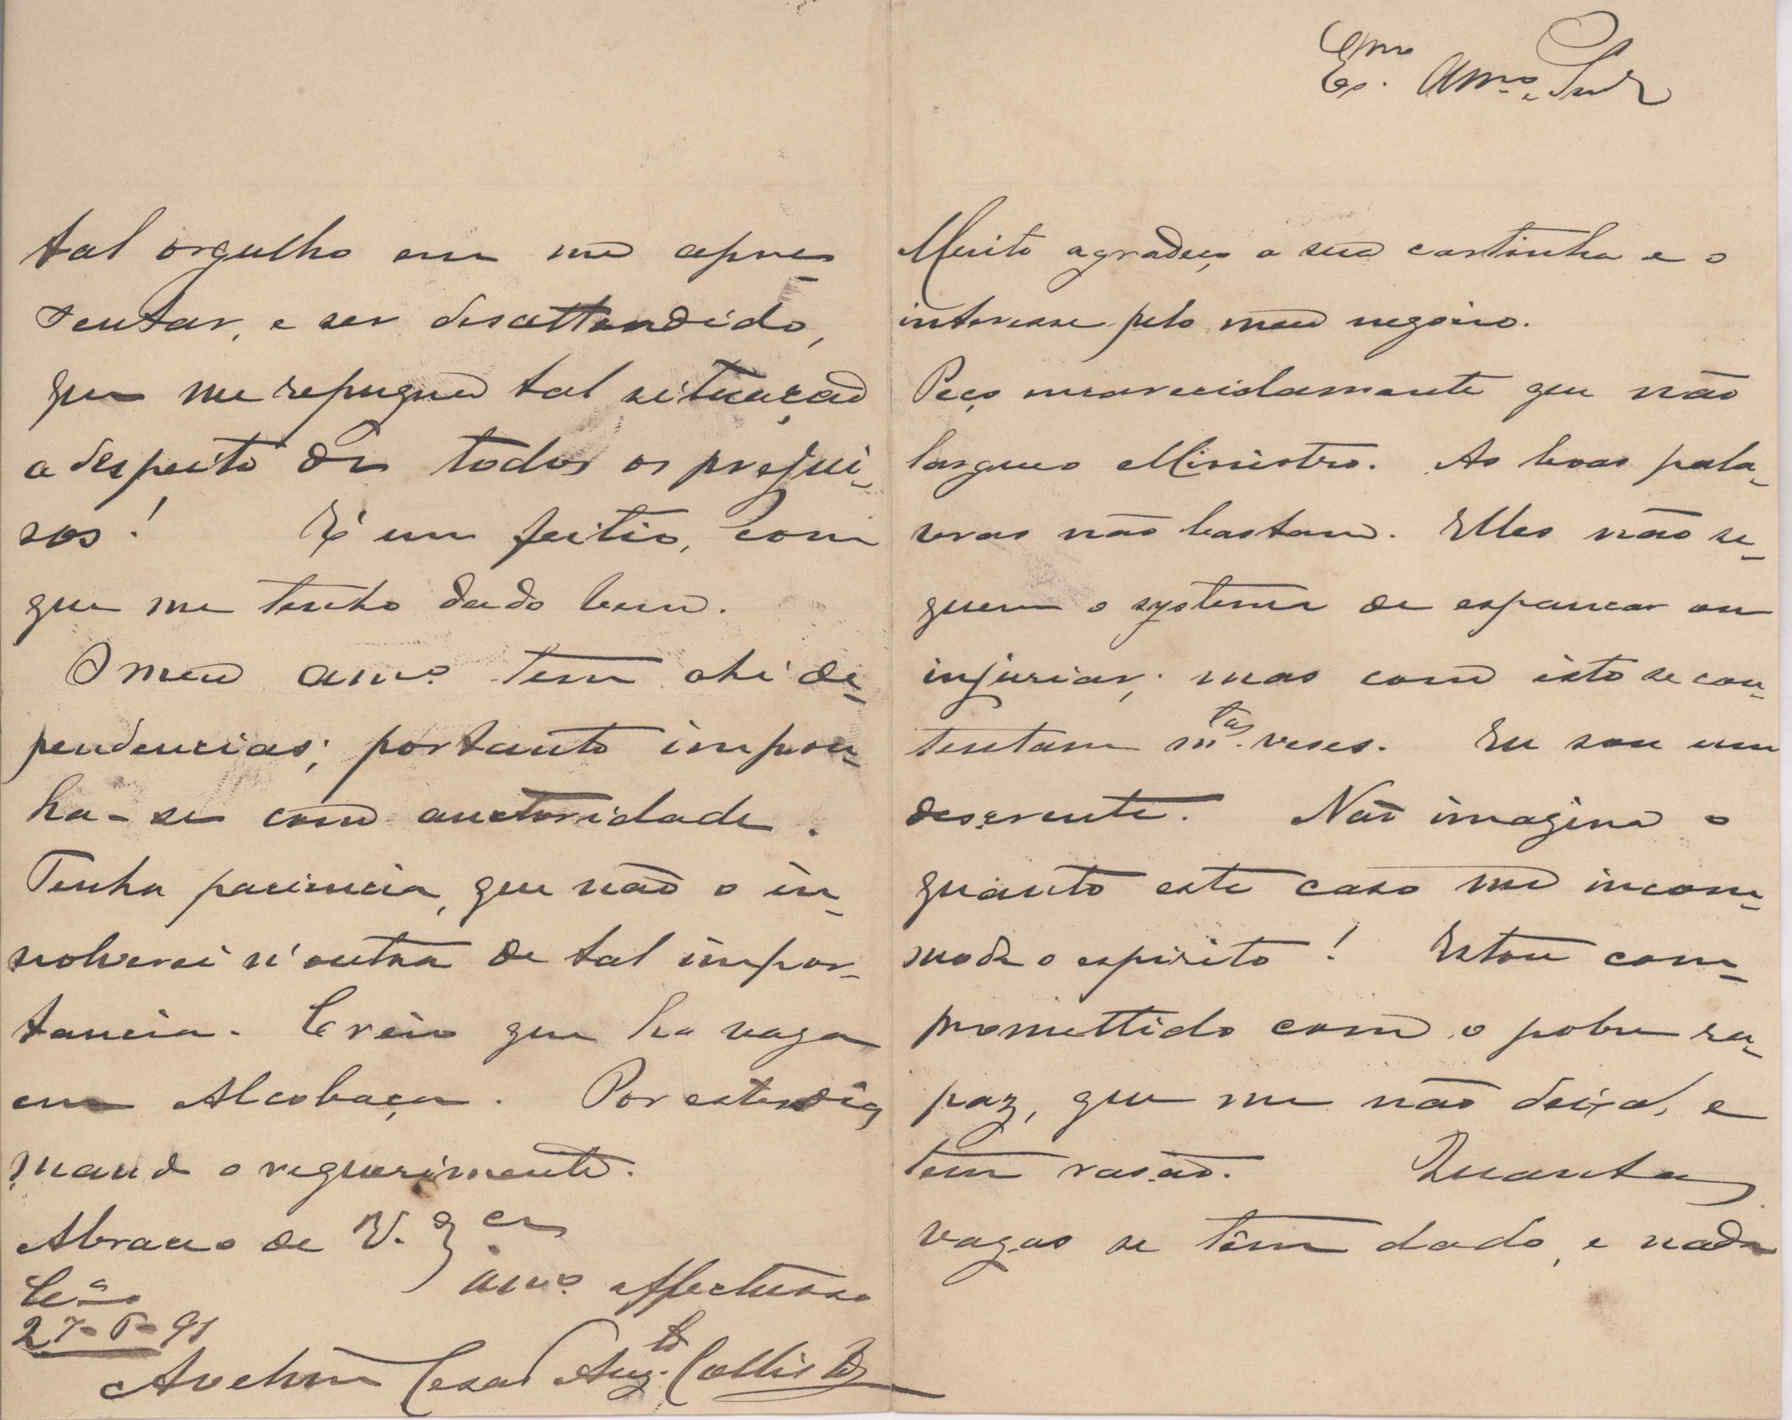 Ex.mo Am.o e Snr
Muito agradeço a sua cartinha e o
interesse pelo meu negocio.
Peço encarecidamente que não
largue o Ministro. As boas pala-
vras não bastam. Elles não se-
guem o systema de espancar ou
injuriar; mas com isto se con-
tentam m.tas veses. Eu sou um
descrente. Não imagina o
quanto este caso me incom-
moda o espirito! Estou com-
promettido com o pobre ra-
paz, que me não deixa, e
tem rasão. Quantas
vagas se têm dado, e nada
tal orgulho em me apre-
sentar, e ser desattendido,
que me repugna tal situação
a despeito de todos os prejui-
sos! É um feitio, com
que me tenho dado bem.
O meu am.o tem ahi de-
pendencias; portanto impon-
ha-se com auctoridade.
Tenha paciencia, que não o in-
volverei n'outra de tal impor-
tancia. Creio que ha vaga
em Alcobaça. Por estes dias
mando o requerimento.
Abraço de V. Ex.cia
am.o affectuoso
27-6-91
Avelino Cesar Aug.to Callisto